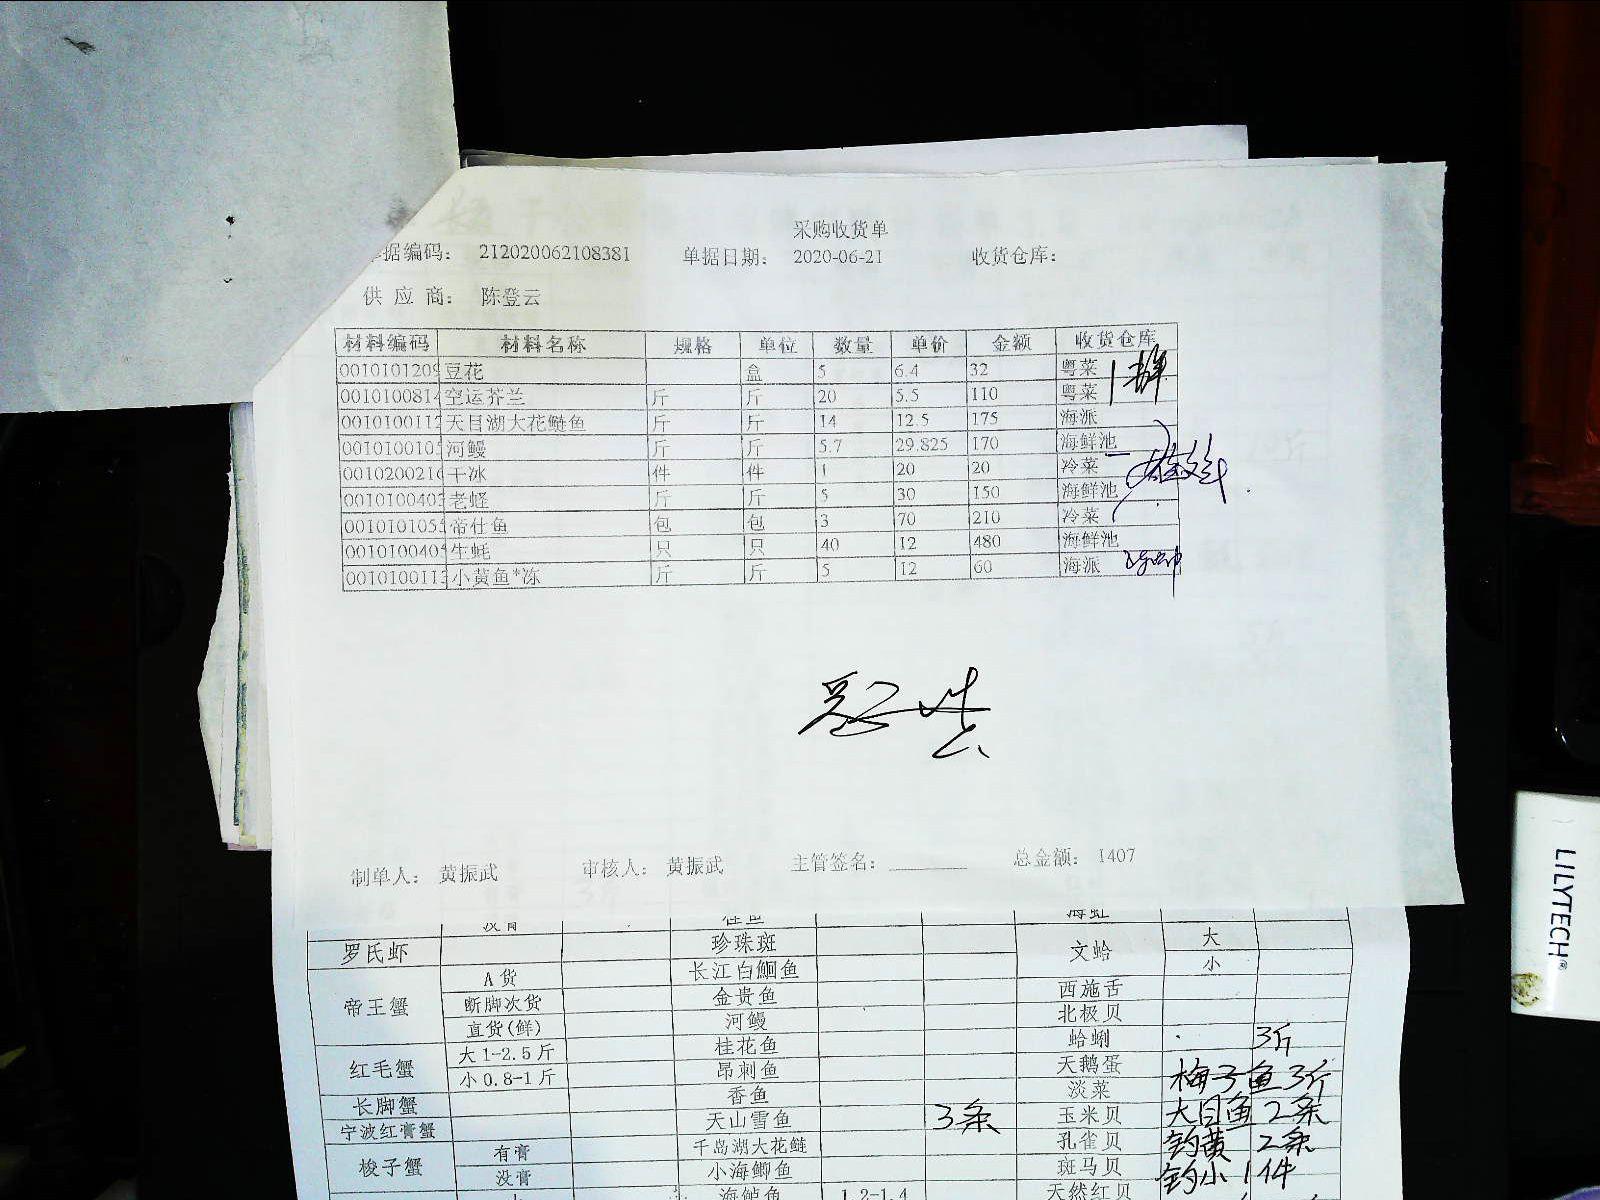 采购收货单
据编码: 212020062108381 单据日期: 2020-06-21 收货仓库:
供应商: 陈登云
材料编码 材料名称 规格 单位 数量 单价 金额 收货仓库
0010101209 豆花 盒 5 6.4 32 粤菜
0010100814 空运芥兰 斤 斤 20 5.5 110 粤菜
0010100112 天目湖大花鲢鱼 斤 斤 14 12.5 175 海派
001010010 河鳗 斤 斤 5.7 29.825 170 海鲜池
001020021 干冰 件 件 1 20 20 冷菜
001010040 老蛏 斤 斤 5 30 150 海鲜池
001010105 帝仕鱼 包 包 3 70 210 冷菜
001010040 生蚝 只 只 40 12 480 海鲜池
001010011 小黄鱼*冻 斤 斤 5 12 60 海派
制单人: 黄振武 审核人: 黄振武 主管签名: 总金额: 1407
没膏 桂鱼 海虹
罗氏虾 珍珠斑 文蛤 大
小
帝王蟹 A货 长江白鮰鱼
断脚次货 金贵鱼 西施舌
直货(鲜) 河鳗 北极贝
红毛蟹 大1-2.5斤 桂花鱼 蛤蜊 3斤
小0.8-1斤 昂刺鱼 天鹅蛋 梅子鱼3斤
长脚蟹 香鱼 淡菜
宁波红膏蟹 天山雪鱼 3条 玉米贝 大目鱼2条
梭子蟹 有膏 千岛湖大花鲢 孔雀贝 钓黄 2条
没膏 小海鲫鱼 斑马贝 钓小1件
海鲈鱼 1.2-1.4 天然红贝
LILYTECH®